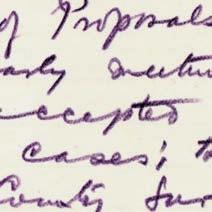 of Proposals
early
accepted
cases; t
County Sur